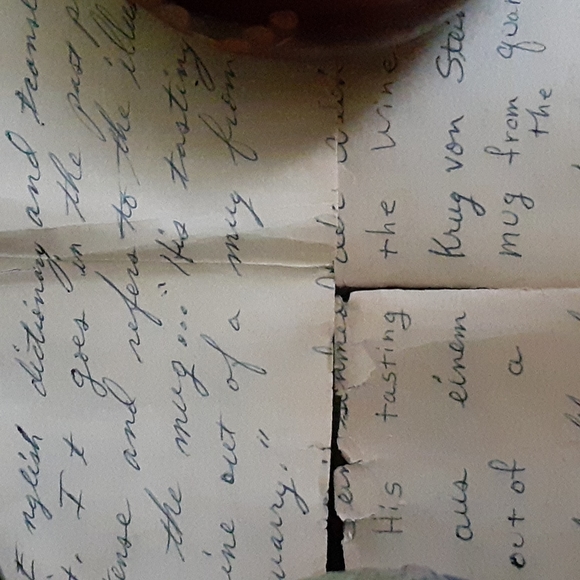 nglish dictionary and transl
t. It goes in the past p
ense and refers to the illu
the mug... "His tasting
ine out of a mug from
uarry."
His tasting the wine
aus einem Krug von Stei
out of a mug from quar
the